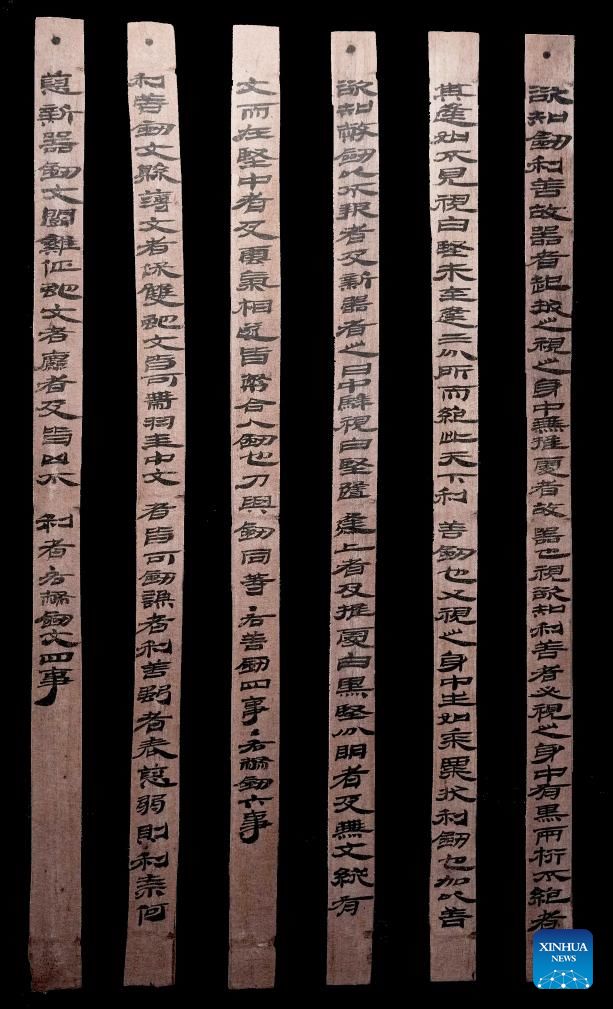 欲知劍利善故器者起拔之視之身中無推處者故器也視欲知利善者必視之身中有黑兩桁不絕者
其逢如不見視白堅未至逢三分所而絕此天下利善劍也又視之身中生如黍粟狀利劍也加以善
欲知幣劍以不報者及新器者之日中騂視白堅隨逢上者及推處白黑堅分明者及無文縱有
文而在堅中者及雲氣相遂皆幣合人劍也刀與劍同等·右善劍四事·右幣劍六事
利善劍文縣薄文者保雙蛇文皆可帶羽圭中文者皆可劍謙者利善強者表惡弱則利奈何
惡新器劍文鬬雞佂蛇文者麤者及皆凶不利者右幣劍文四事
XINHUA
NEWS